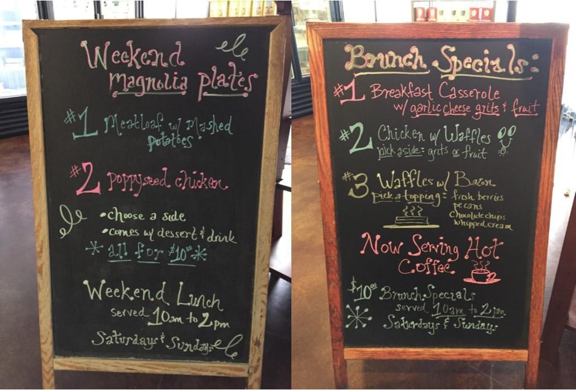 Weekend
Magnolia Plates
#1 Meatloaf w/ Mashed
potatoes
#2 Poppyseed chicken
• choose a side
• comes w/ dessert & drink
all for $10⁰⁰
Weekend Lunch
served 10am to 2pm
Saturdays & Sundays
Brunch Specials:
#1 Breakfast Casserole
w/ garlic cheese grits & fruit
#2 Chicken w/ Waffles
pick a side: grits or fruit
#3 Waffles w/ Bacon
pick a topping: fresh berries
pecans
chocolate chips
whipped cream
Now Serving Hot
Coffee
$10⁰⁰ Brunch Specials
served 10am to 2pm
Saturdays & Sunday